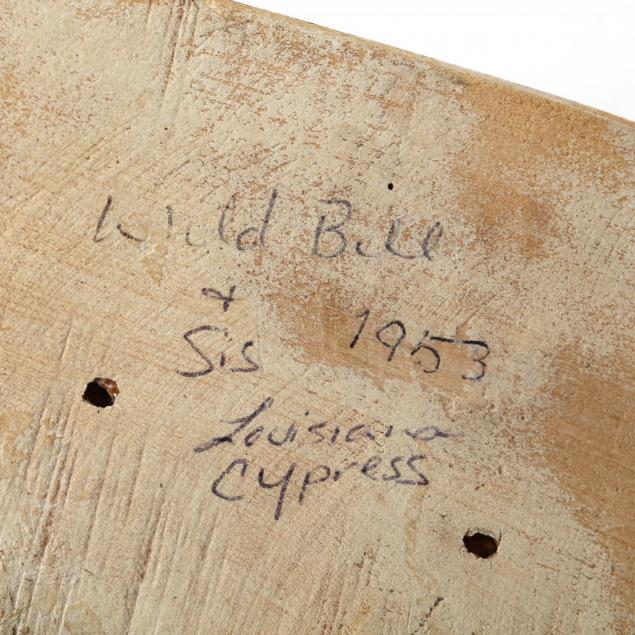 Wild Bill
+
Sis 1953
Louisiana
Cypress